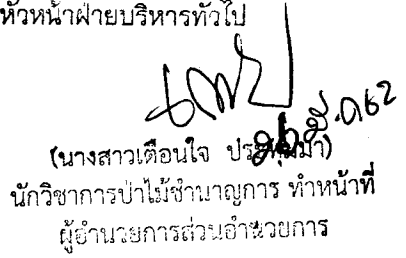 หัวหน้าฝ่ายบริหารทั่วไป
มี.ค 62
(นางสาวเตือนใจ
นักวิชาการป่าไม้ชำนาญการ ทำหน้าที่
ผู้อำนวยการส่วนอำนวยการ